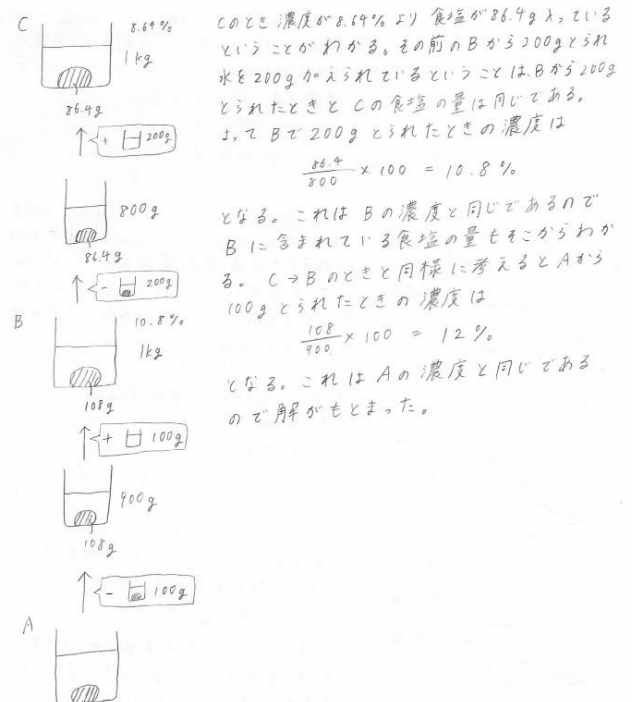 C
8.64%
1kg
86.4g
+ 200g
800g
86.4g
- 200g
B
10.8%
1kg
108g
+ 100g
900g
108g
- 100g
A
Cのとき濃度が8.64%より食塩が86.4g入っている
ということがわかる。その前のBから200gとられ
水を200g加えられているということは、Bから200g
とられたときとCの食塩の量は同じである。
よってBで200gとられたときの濃度は
86.4/800 × 100 = 10.8%
となる。これはBの濃度と同じであるので
Bに含まれている食塩の量もそこからわか
る。C→Bのときと同様に考えるとAから
100gとられたときの濃度は
108/900 × 100 = 12%
となる。これはAの濃度と同じである
ので解がもとまった。